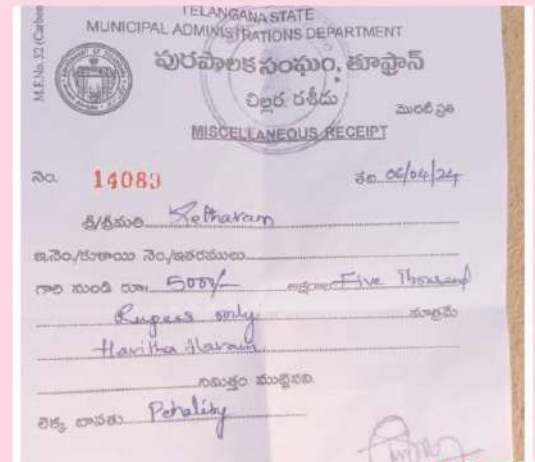 TELANGANA STATE
MUNICIPAL ADMINISTRATIONS DEPARTMENT
M.F.No. 52 (Carbon
పురపాలక సంఘం, తూప్రాన్
చిల్లర రశీదు
మొదటి ప్రతి
MISCELLANEOUS RECEIPT
నెం. 14083 తేది 06/04/24
శ్రీ/శ్రీమతి
ఇ.నెం./కుళాయి నెం./ఇతరములు
గారి నుండి రూ. 5000/- అక్షరాల Five Thousand
Rupees only మాత్రమే
Haritha Haram
నిమిత్తం ముట్టినవి.
లెక్క బాపతు Penality